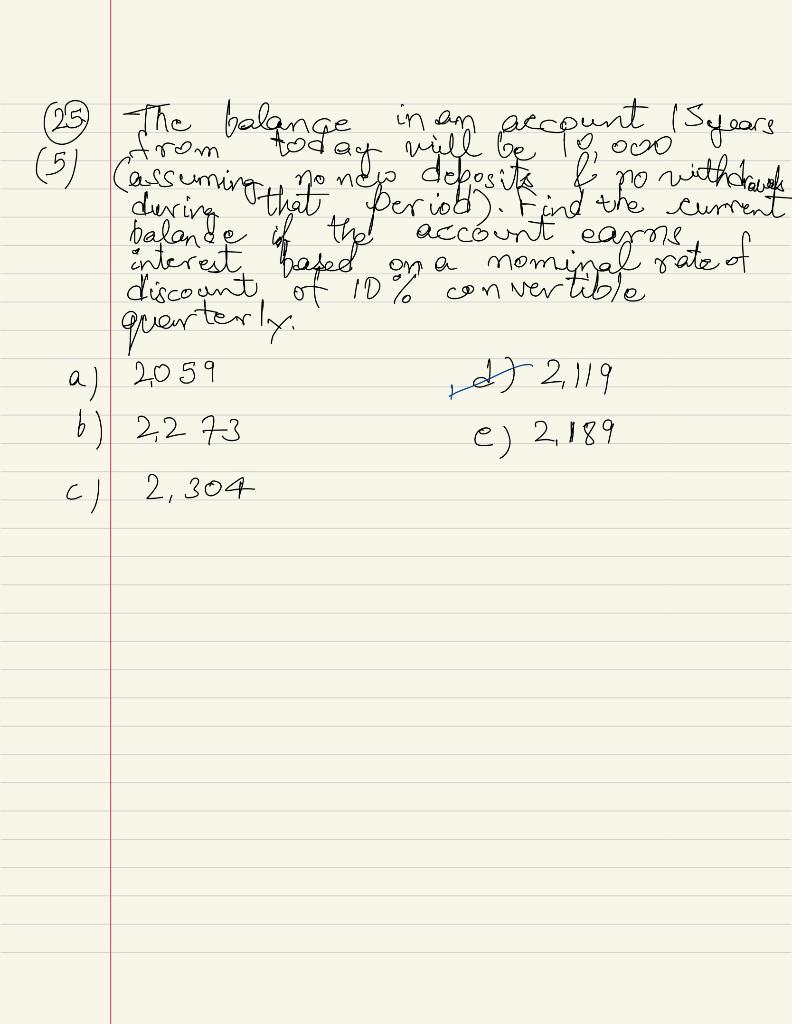 (25) The balance in an account 15 years
(5) from today will be 10,000
(assuming no new deposits & no withdrawals
during that period). Find the current
balance if the account earns
interest based on a nominal rate of
discount of 10% convertible
quarterly.
a) 2,059 d) 2,119
b) 2,273 e) 2,189
c) 2,304